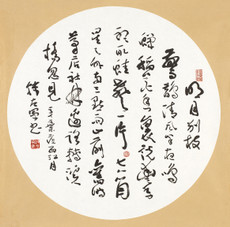 明月别枝
驚鵲清風半夜鳴
蟬稻花香裏說豐年
聽取蛙聲一片七八個
星天外兩三點雨山前舊時
茅店社林邊路轉溪
橋忽見辛棄疾西江月